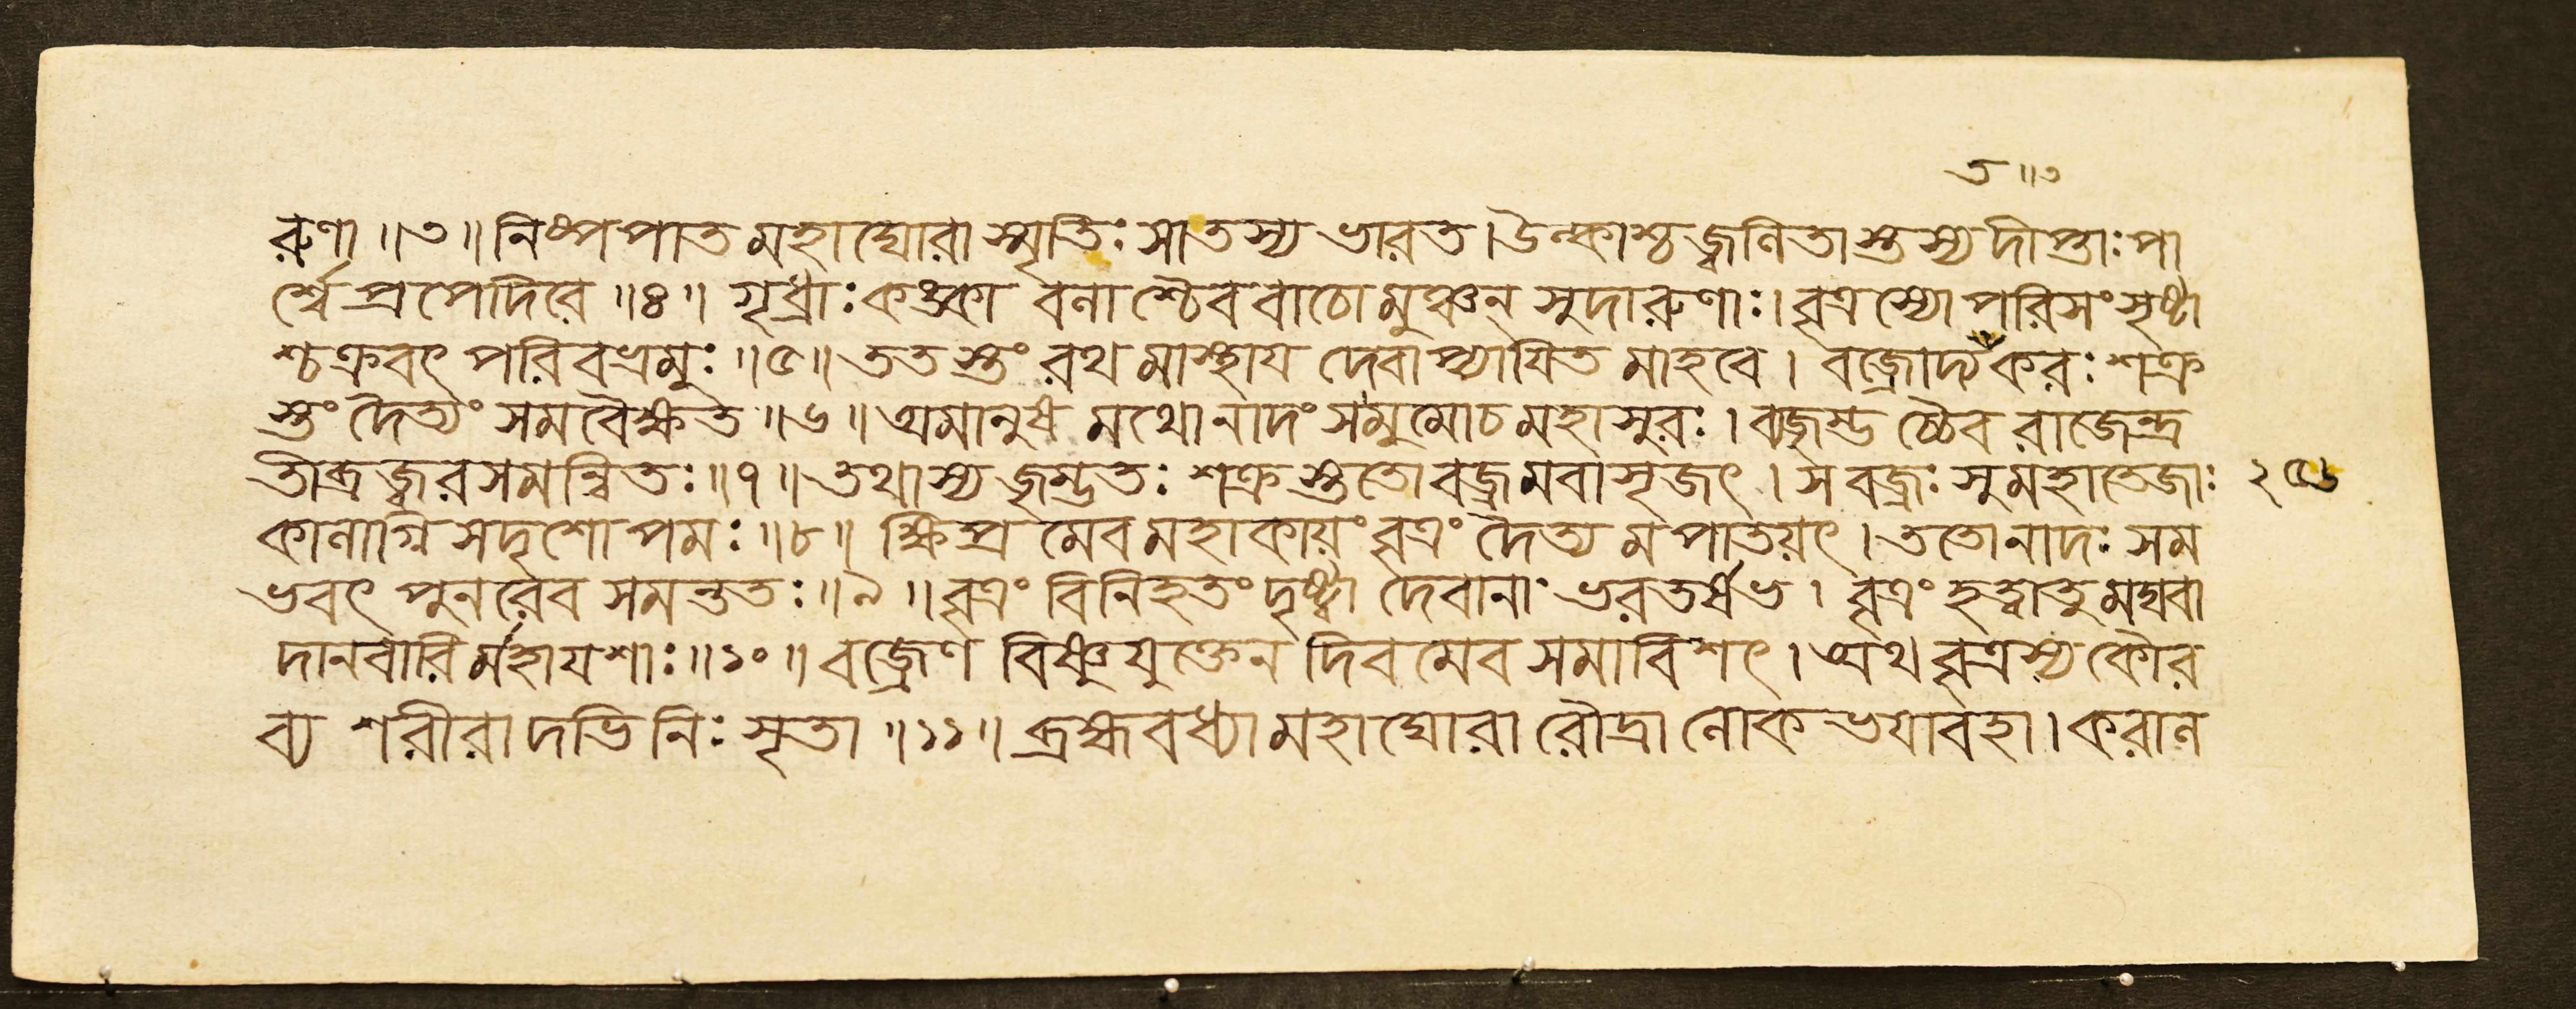 ত ॥৩
রুণা ॥৩॥ নিষ্পপাত মহাঘোরা স্মৃতিঃ সাতস্য ভারত । উল্কাশ্চ জ্বলিতাস্তস্য দীপ্তাঃ পা
র্শ্বে প্রপেদিরে ॥৪॥ গৃধ্রাঃ কঙ্কা বলাশ্চৈব বাচো মুঞ্চন্ সুদারুণাঃ । বৃত্রস্যোপরি সংসৃষ্টা
শ্চক্রবৎ পরিবভ্রমুঃ ॥৫॥ ততস্তং রথমাস্থায দেবাপ্যাযিত মাহবে । বজ্রোদ্যতকরঃ শক্র
স্তং দৈত্যং সমবৈক্ষত ॥৬॥ অমানুষ মথো নাদং স মুমোচ মহাসুরঃ । ব্যজৃম্ভ চ্চৈব রাজেন্দ্র
তীব্রজ্বরসমন্বিতঃ ॥৭॥ তথাস্য জৃম্ভতঃ শক্রস্ততো বজ্রমবাসৃজৎ । স বজ্রঃ সুমহাতেজাঃ ২৫৬
কালাগ্নিসদৃশোপমঃ ॥৮॥ ক্ষিপ্রমেব মহাকায়ং বৃত্রং দৈত্যমপাতয়ৎ । ততো নাদঃ সম
ভবৎ পুনরেব সমন্ততঃ ॥৯॥ বৃত্রং বিনিহতং দৃষ্ট্বা দেবানাং ভরতর্ষভ । বৃত্রং হত্বা তু মঘবা
দানবারির্মহাযশাঃ ॥১০॥ বজ্রেণ বিষ্ণুযুক্তেন দিবমেব সমাবিশৎ । অথ বৃত্রস্য কৌর
ব্য শরীরাদভিনিঃসৃতা ॥১১॥ ব্রহ্মবধ্যা মহাঘোরা রৌদ্রা লোকভযাবহা । করাল